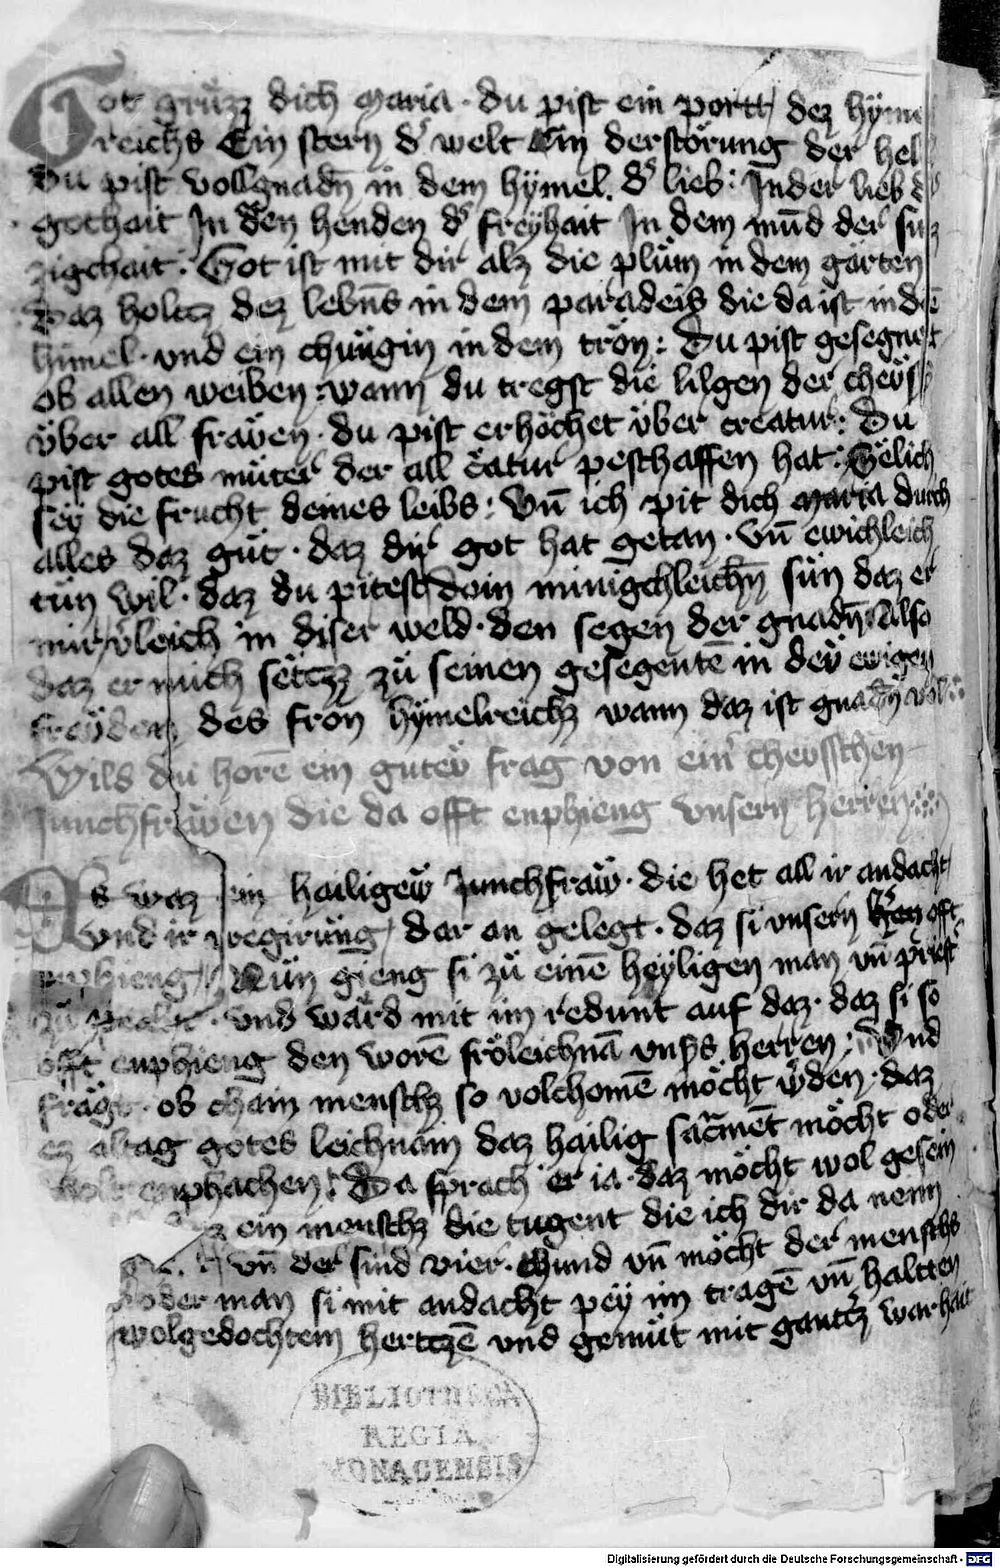 Got grüzz dich Maria · du pist ein portt dez hyme
reichs Ein stern d' welt Ein derstörung der hel
Du pist vollgnadn̄ in dem hymel. d' lieb: In der lieb d
gothait In den henden d' freyhait In dem mūd der su
zigchait · Got ist mit dir alz die plüm in dem gärten
Daz holtz dez lebn̄s in dem paradeis die da ist in dē
himel · und ein chüngin in dem tron: Du pist gesegnet
ob allen weiben: wann du tregst die lilgen der cheüs
über all fraẅen · du pist erhöchet über creatur: Du
pist gotes müter der all c̄atur peschaffen hat · Sëlich
sey die frucht deines leibs: Vn̄ ich pit dich Maria durch
alles daz güt · daz dir got hat getan · Vn̄ ewichleich
tün wil · daz du pitest dein minigchleichn̄ sün daz er
mir verleich in diser weld · den segen der gnadn̄ Also
daz er mich setzz zü seinen gesegentē in der ewigen
freẅden des fron hymelreichz wann daz ist gnadn̄ vol
Wils du horē ein guteẅ frag von ein' cheüsschen
Junchfraẅen die da offt enphieng vnsern herren
Es waz ein hailigeẅ Junchfraẅ · die het all ir andacht
Vnd ir wegirüng dar an gelegt · daz si vnsern h'ren offt
enphieng Nün gieng si zü einē heyligen man vn̄ priest'
· vnd ward mit im redunt auf daz · daz si so
offt enphieng den worē fröleichnā vnsers herren: Vnd
frägt · ob chain menschz so volchomē möcht w'den · daz
ez altag gotes leichnam daz hailig sacmēt möcht oder
wolt enphachen: Da sprach er ia · daz möcht wol gesein
ein menschz die tugent die ich dir da nenn
vn̄ der sind vier · chund vn̄ möcht der menschs
oder man si mit andacht pey im tragē vn̄ haltten
wolgedochtem hertzē vnd gemüt mit gantz' warhait
BIBLIOTHECA
REGIA
MONACENSIS
Digitalisierung gefördert durch die Deutsche Forschungsgemeinschaft - DFG